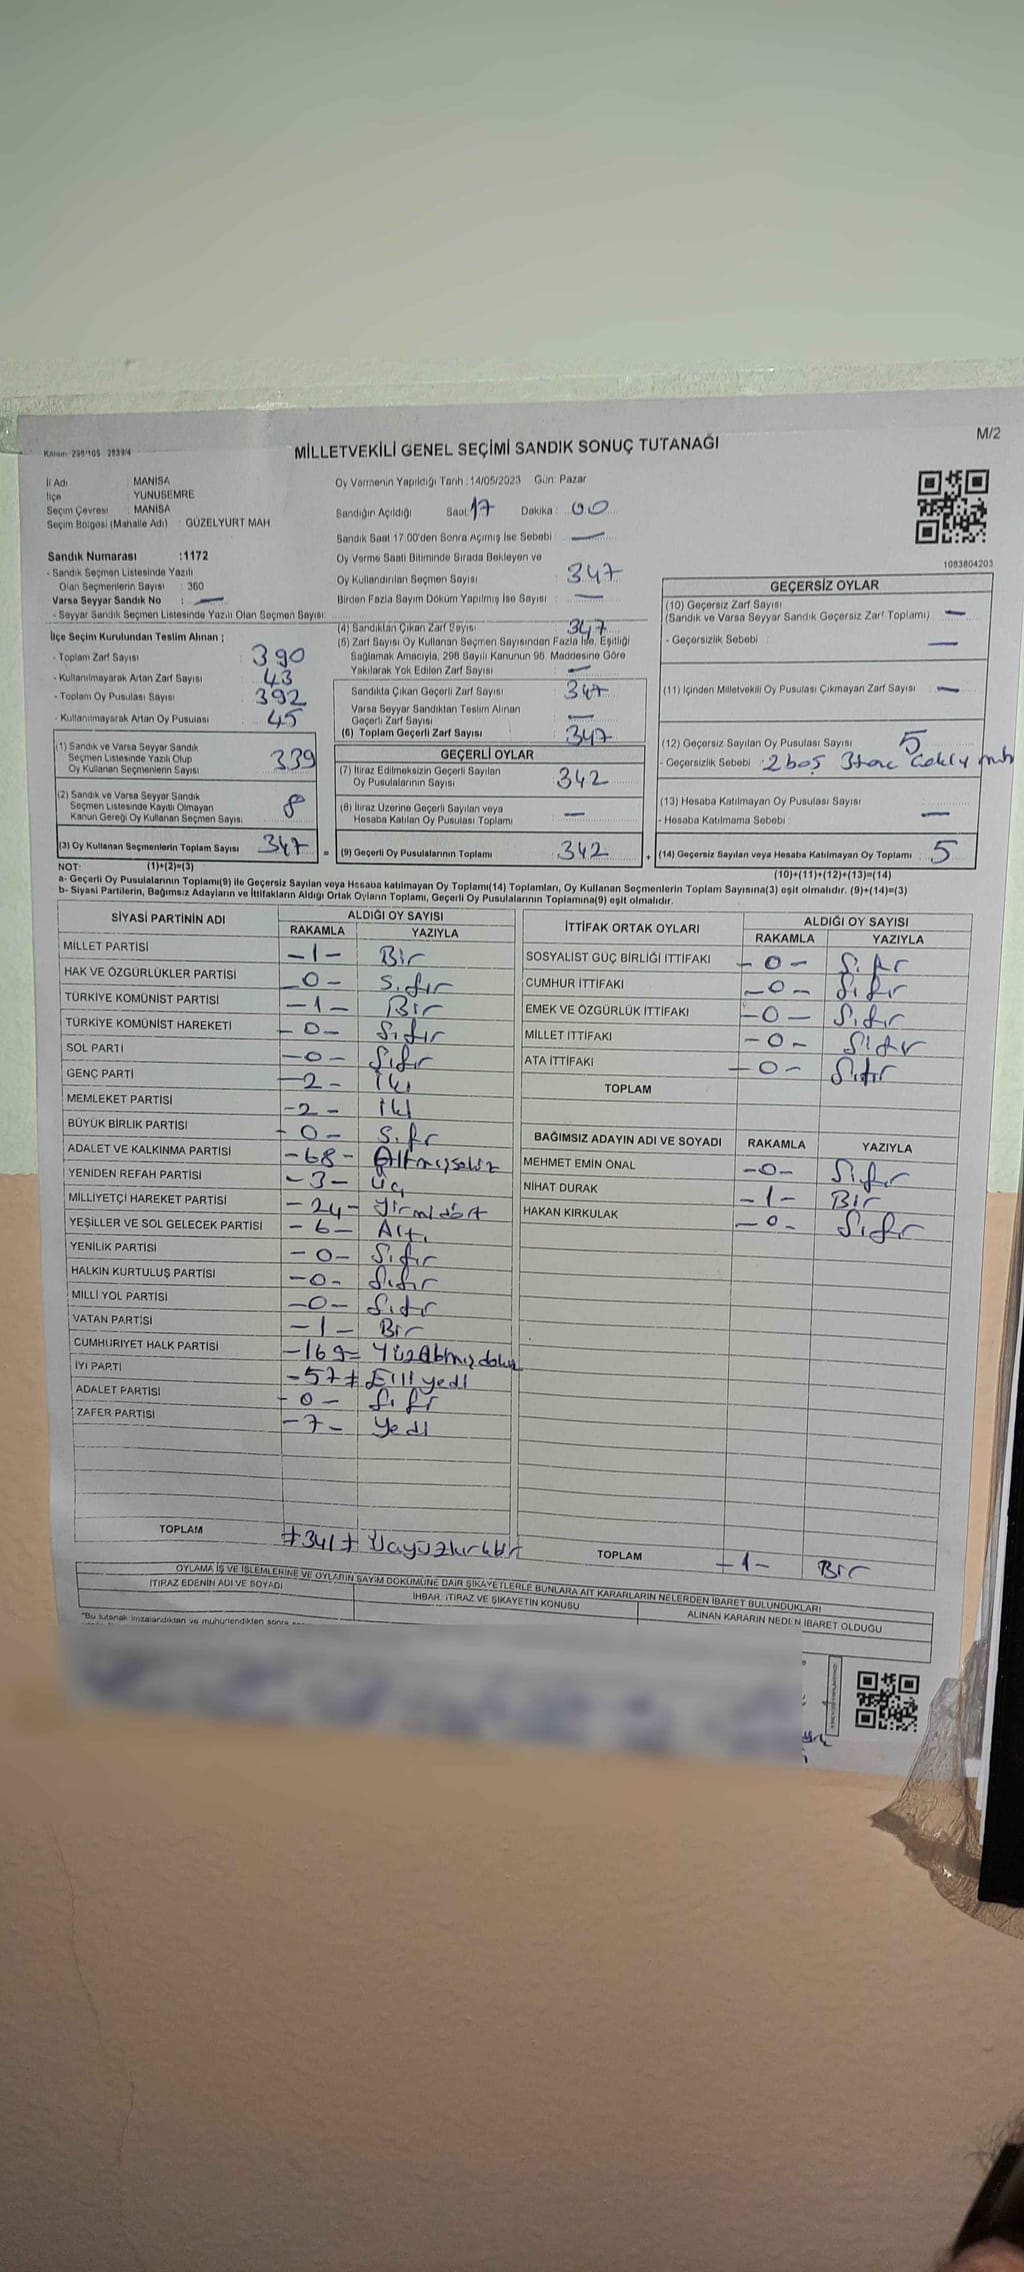 M/2
Kanun 298/105 2839/4
MİLLETVEKİLİ GENEL SEÇİMİ SANDIK SONUÇ TUTANAĞI
İl Adı : MANİSA
İlçe : YUNUSEMRE
Seçim Çevresi : MANİSA
Seçim Bölgesi (Mahalle Adı) : GÜZELYURT MAH.
Oy Vermenin Yapıldığı Tarih : 14/05/2023 Gün: Pazar
Sandığın Açıldığı Saat: 17 Dakika : 00
Sandık Saat 17:00'den Sonra Açımış İse Sebebi : —
Sandık Numarası :1172
- Sandık Seçmen Listesinde Yazılı
Olan Seçmenlerin Sayısı : 360
Varsa Seyyar Sandık No : —
- Seyyar Sandık Seçmen Listesinde Yazılı Olan Seçmen Sayısı:
Oy Verme Saati Bitiminde Sırada Bekleyen ve
Oy Kullandırılan Seçmen Sayısı : 347
Birden Fazla Sayım Döküm Yapılmış İse Sayısı : —
1083804203
İlçe Seçim Kurulundan Teslim Alınan ;
- Toplam Zarf Sayısı : 390
- Kullanılmayarak Artan Zarf Sayısı : 43
- Toplam Oy Pusulası Sayısı : 392
- Kullanılmayarak Artan Oy Pusulası : 45
(1) Sandık ve Varsa Seyyar Sandık
Seçmen Listesinde Yazılı Olup
Oy Kullanan Seçmenlerin Sayısı : 339
(2) Sandık ve Varsa Seyyar Sandık
Seçmen Listesinde Kayıtlı Olmayan
Kanun Gereği Oy Kullanan Seçmen Sayısı : 8
(3) Oy Kullanan Seçmenlerin Toplam Sayısı : 347 =
(4) Sandıktan Çıkan Zarf Sayısı : 347
(5) Zarf Sayısı Oy Kullanan Seçmen Sayısından Fazla İse, Eşitliği
Sağlamak Amacıyla, 298 Sayılı Kanunun 98. Maddesine Göre
Yakılarak Yok Edilen Zarf Sayısı : —
Sandıkta Çıkan Geçerli Zarf Sayısı : 347
Varsa Seyyar Sandıktan Teslim Alınan
Geçerli Zarf Sayısı : —
(6) Toplam Geçerli Zarf Sayısı : 347
GEÇERLİ OYLAR
(7) İtiraz Edilmeksizin Geçerli Sayılan
Oy Pusulalarının Sayısı : 342
(8) İtiraz Üzerine Geçerli Sayılan veya
Hesaba Katılan Oy Pusulası Toplamı : —
(9) Geçerli Oy Pusulalarının Toplamı : 342 +
GEÇERSİZ OYLAR
(10) Geçersiz Zarf Sayısı
(Sandık ve Varsa Seyyar Sandık Geçersiz Zarf Toplamı) : —
- Geçersizlik Sebebi : —
(11) İçinden Milletvekili Oy Pusulası Çıkmayan Zarf Sayısı : —
(12) Geçersiz Sayılan Oy Pusulası Sayısı : 5
- Geçersizlik Sebebi : 2 boş 3
(13) Hesaba Katılmayan Oy Pusulası Sayısı :
- Hesaba Katılmama Sebebi : —
(14) Geçersiz Sayılan veya Hesaba Katılmayan Oy Toplamı : 5
NOT: (1)+(2)=(3)
(10)+(11)+(12)+(13)=(14)
a- Geçerli Oy Pusulalarının Toplamı(9) ile Geçersiz Sayılan veya Hesaba katılmayan Oy Toplamı(14) Toplamları, Oy Kullanan Seçmenlerin Toplam Sayısına(3) eşit olmalıdır. (9)+(14)=(3)
b- Siyasi Partilerin, Bağımsız Adayların ve İttifakların Aldığı Ortak Oyların Toplamı, Geçerli Oy Pusulalarının Toplamına(9) eşit olmalıdır.
SİYASİ PARTİNİN ADI ALDIĞI OY SAYISI
RAKAMLA YAZIYLA
MİLLET PARTİSİ -1- Bir
HAK VE ÖZGÜRLÜKLER PARTİSİ -0- Sıfır
TÜRKİYE KOMÜNİST PARTİSİ -1- Bir
TÜRKİYE KOMÜNİST HAREKETİ -0- Sıfır
SOL PARTİ -0- Sıfır
GENÇ PARTİ -2- İki
MEMLEKET PARTİSİ -2- İki
BÜYÜK BİRLİK PARTİSİ -0- Sıfır
ADALET VE KALKINMA PARTİSİ -68- Altmışsekiz
YENİDEN REFAH PARTİSİ -3- Üç
MİLLİYETÇİ HAREKET PARTİSİ -24- Yirmidört
YEŞİLLER VE SOL GELECEK PARTİSİ -6- Altı
YENİLİK PARTİSİ -0- Sıfır
HALKIN KURTULUŞ PARTİSİ -0- Sıfır
MİLLİ YOL PARTİSİ -0- Sıfır
VATAN PARTİSİ -1- Bir
CUMHURİYET HALK PARTİSİ -169= Yüzaltmışdokuz
İYİ PARTİ -57≠ Elliyedi
ADALET PARTİSİ -0- Sıfır
ZAFER PARTİSİ -7- Yedi
TOPLAM ≠341≠ Üçyüzkırkbir
İTTİFAK ORTAK OYLARI ALDIĞI OY SAYISI
RAKAMLA YAZIYLA
SOSYALİST GÜÇ BİRLİĞİ İTTİFAKI -0- Sıfır
CUMHUR İTTİFAKI -0- Sıfır
EMEK VE ÖZGÜRLÜK İTTİFAKI -0- Sıfır
MİLLET İTTİFAKI -0- Sıfır
ATA İTTİFAKI -0- Sıfır
TOPLAM
BAĞIMSIZ ADAYIN ADI VE SOYADI RAKAMLA YAZIYLA
MEHMET EMİN ÖNAL -0- Sıfır
NİHAT DURAK -1- Bir
HAKAN KIRKULAK -0- Sıfır
TOPLAM -1- Bir
OYLAMA İŞ VE İŞLEMLERİNE VE OYLARIN SAYIM DÖKÜMÜNE DAİR ŞİKAYETLERLE BUNLARA AİT KARARLARIN NELERDEN İBARET BULUNDUKLARI
İTİRAZ EDENİN ADI VE SOYADI İHBAR, İTİRAZ VE ŞİKAYETİN KONUSU ALINAN KARARIN NEDEN İBARET OLDUĞU
"Bu tutanak imzalandıktan ve mühürlendikten sonra